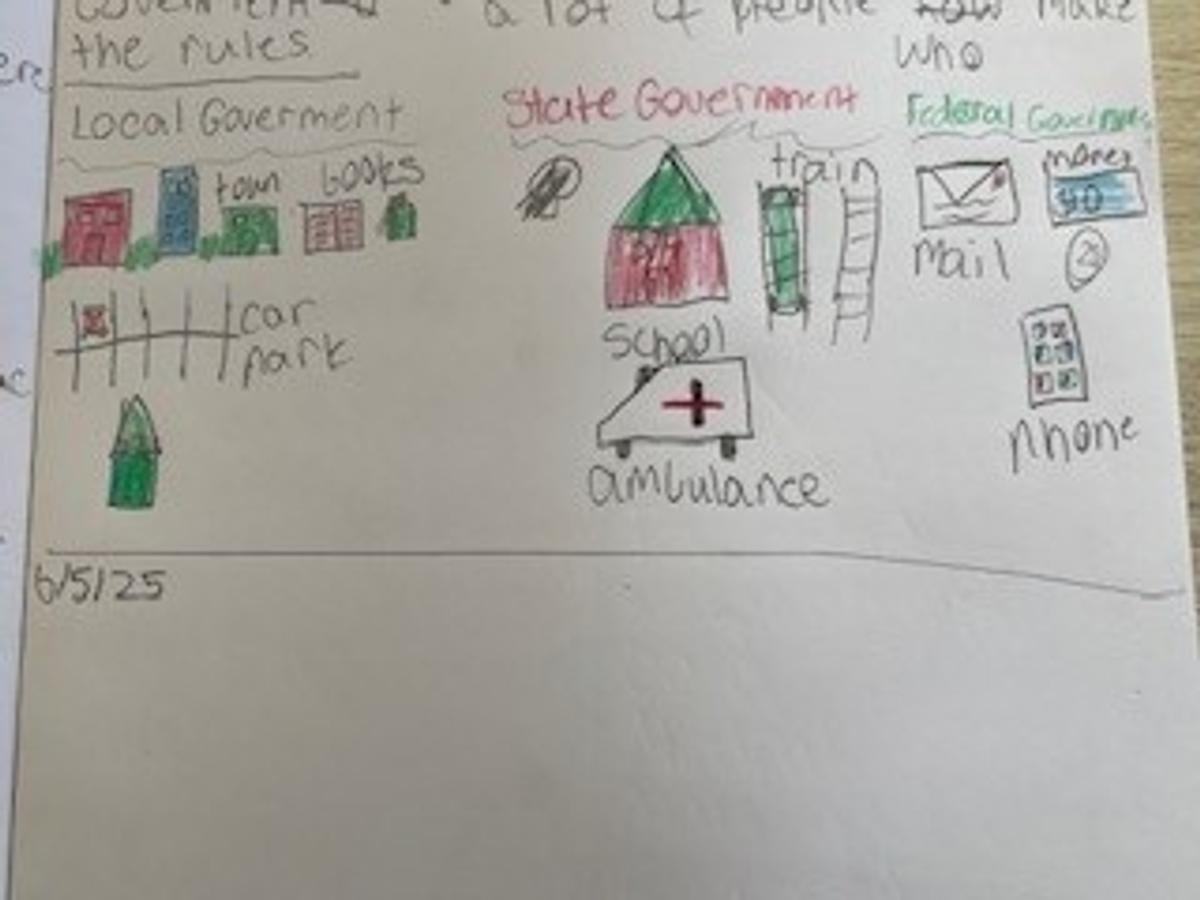 a lot of people make
the rules
who
Local Goverment
State Government
Federal
town books
train
money
mail
car
park
school
phone
ambulance
6/5/25